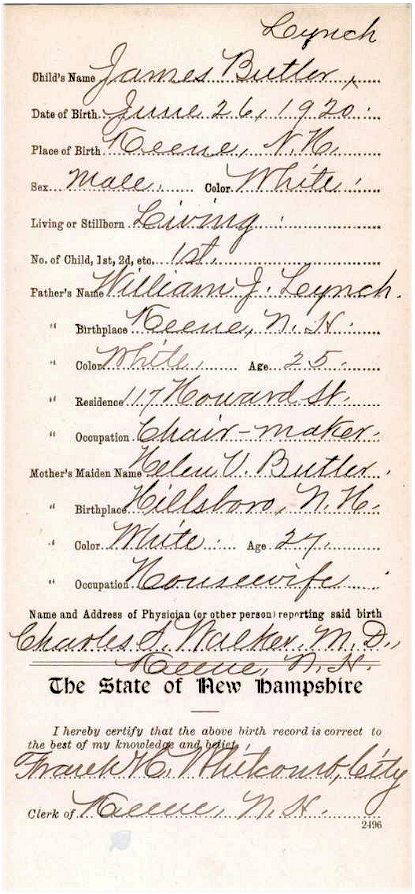 Lynch
Child's Name James Butler,
Date of Birth June 26, 1920.
Place of Birth Keene, N.H.
Sex Male. Color White.
Living or Stillborn Living
No. of Child, 1st, 2d, etc. 1st.
Father's Name William J. Lynch.
" Birthplace Keene, N.H.
" Color White. Age 25.
" Residence 117 Howard St.
" Occupation Chair-maker.
Mother's Maiden Name Helen V. Butler.
" Birthplace Hillsboro, N.H.
" Color White. Age 27.
" Occupation Housewife
Name and Address of Physician (or other person) reporting said birth
Charles S. Walker, M.D.,
Keene, N.H.
The State of New Hampshire
I hereby certify that the above birth record is correct to
the best of my knowledge and belief,
Frank H. Whitcomb, City
Clerk of Keene, N.H.
2496